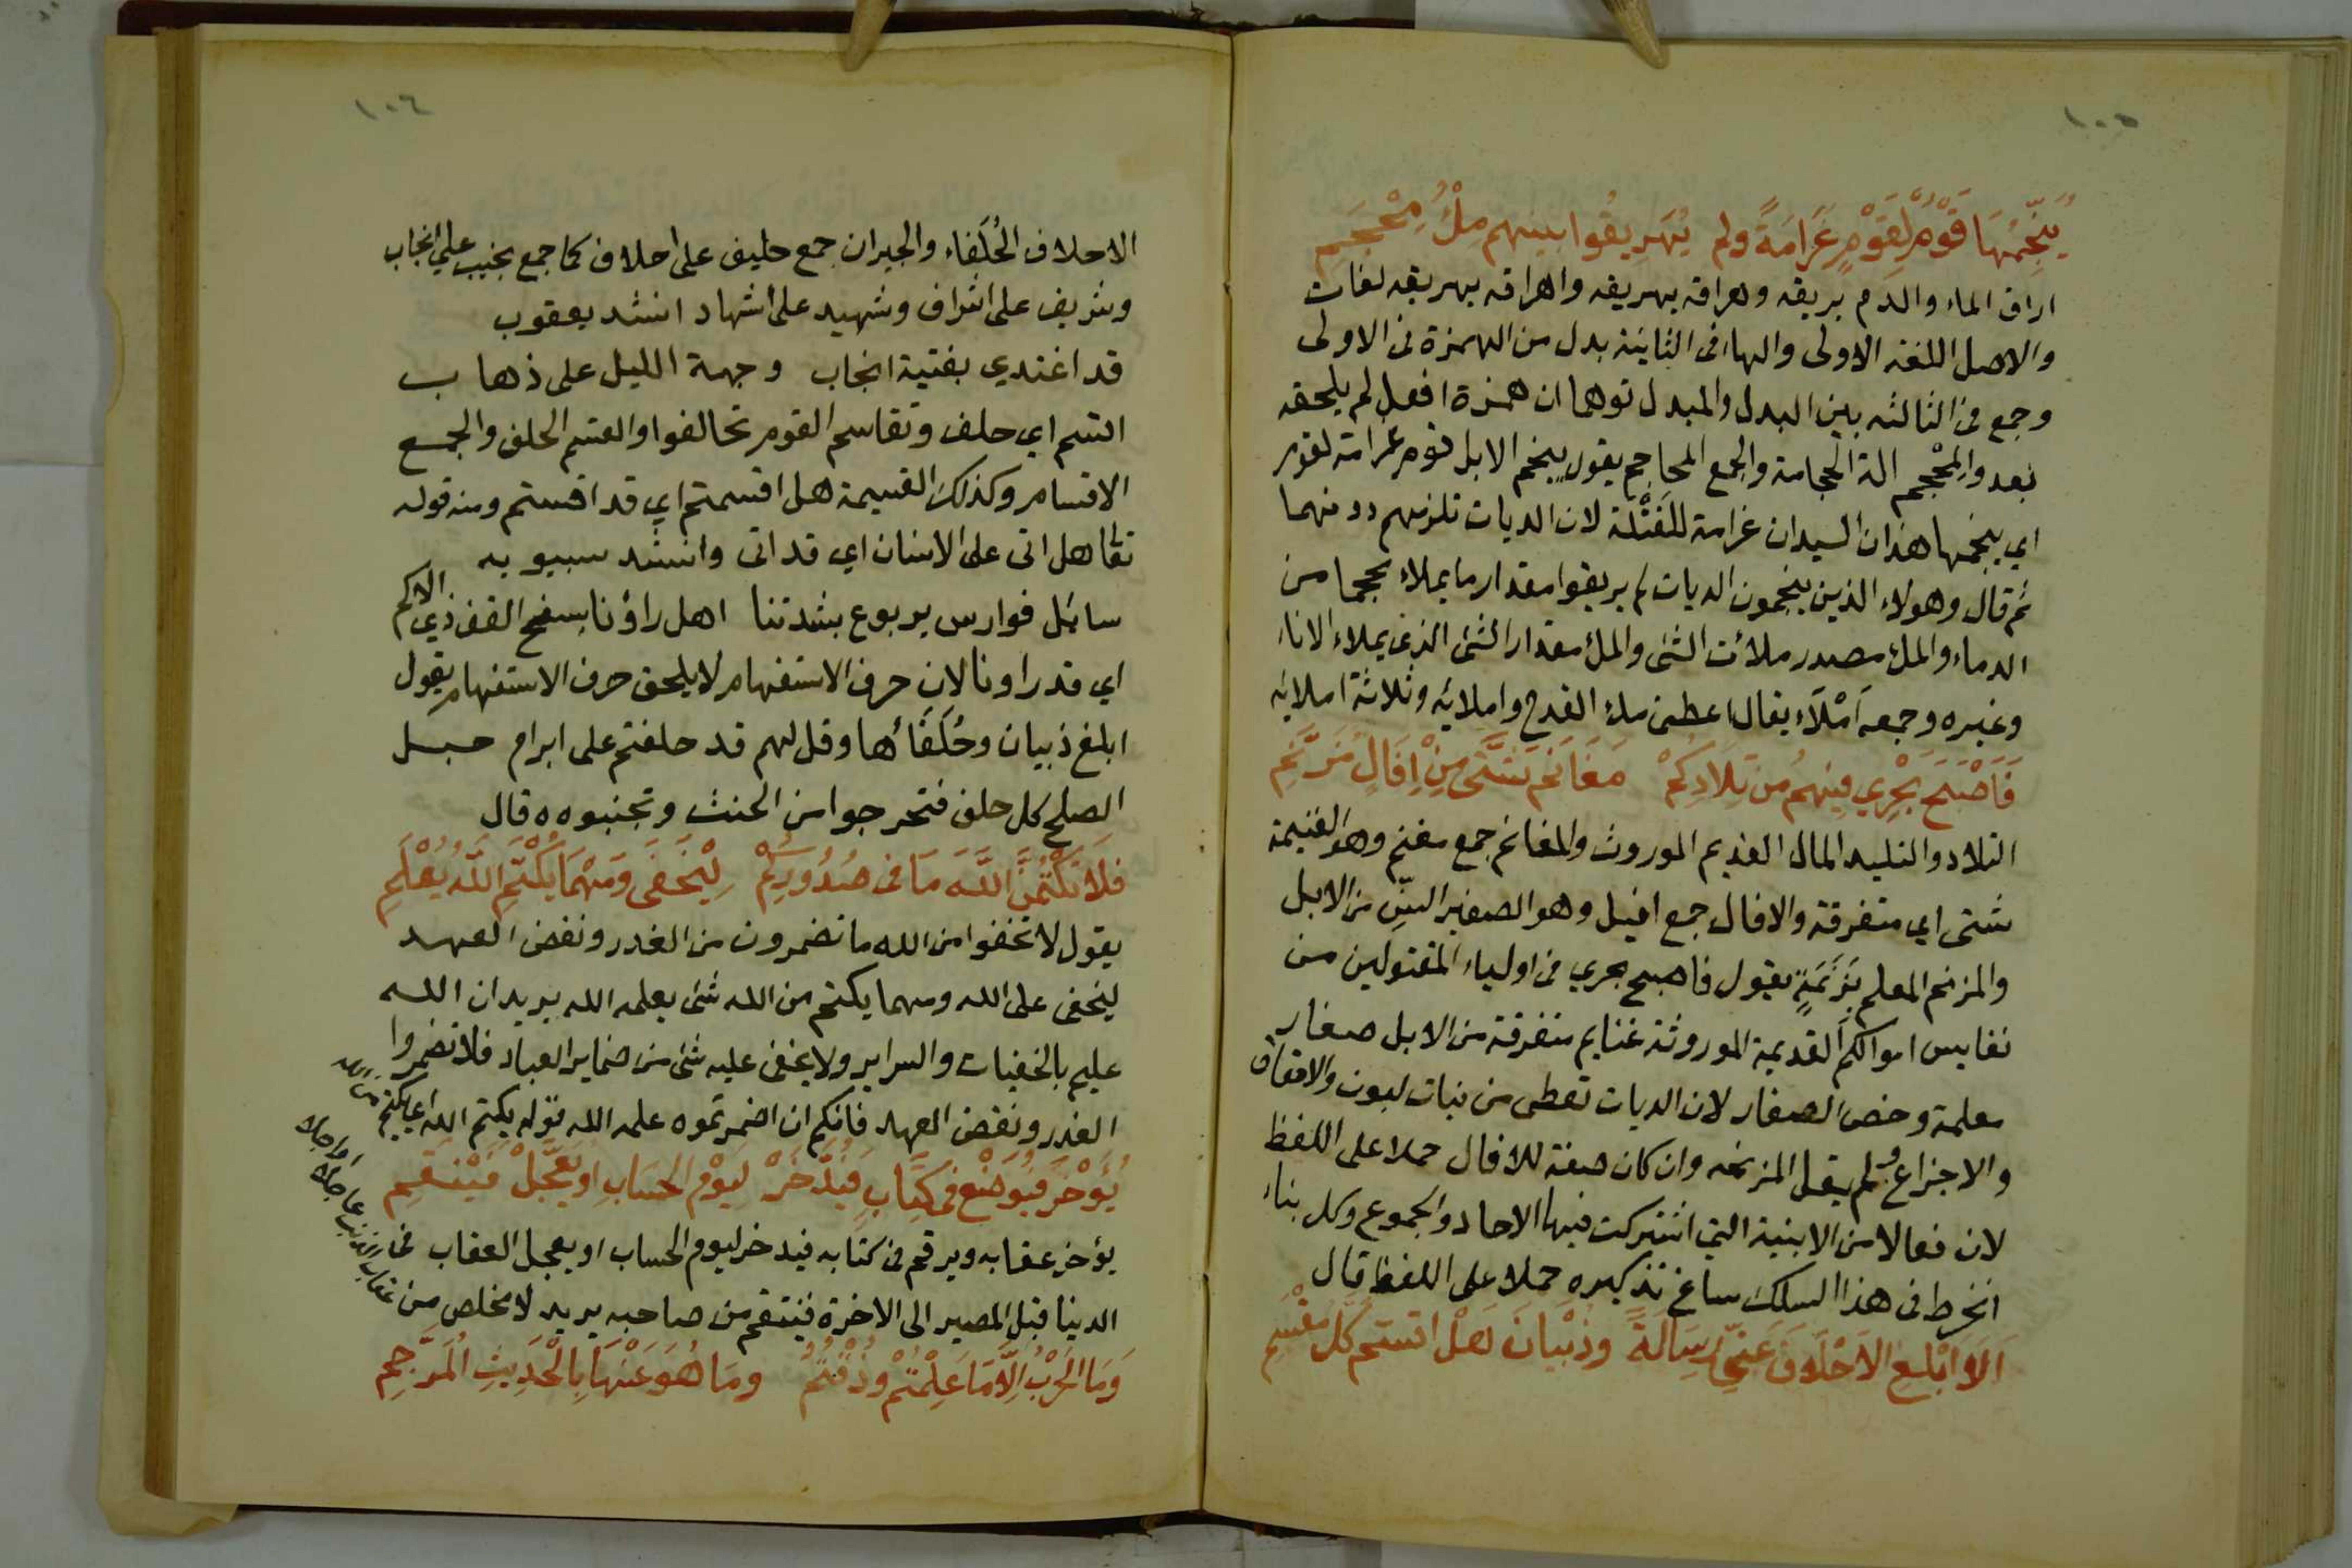 ١٠٥
يُنَجِّمُهَا قَوْمٌ لِّقَوْمٍ غَرَامَةً ولم يُهَرِيقُوا بينهم مِلْءَ مِحْجَمِ
اراق الماء والدم يريقه وهراقه يهريقه واهراقه يهريقه لغات
والاصل اللغه الاولى والهاء فى الثانية بدل من الهمزة فى الاولى
وجمع فى الثالثه بين البدل والمبدل توهما ان همزة افعل لم يلحقه
بعد والمِحْجم الة الحجامة والجمع المحاجم يقول ينجم الابل قوم غرامة لقوم
اي ينجمها هذان السيدان غرامة للقَتْلَة لان الديات تلزمهم دونهما
ثم قال وهولاء الذين ينجمون الديات لم يريقوا مقدار ما يملاء محجما من
الدماء والملء مصدر ملائت الشئ والملء مقدار الشئ الذي يملاء الاناء
وغيره وجمعه اَمْلَاء يقال اعطنى ملء القدح واملايه وثلاثة املايه
فَاَصْبَحَ يَجْرِي فِيهمُ مِن تِلَادِكُمْ مَغَانِمُ شَتَّى مِنْ اِفَالٍ مُزَنَّمِ
التلاد والتليد المال القديم الموروث والمغانم جمع مغنم وهو الغنيمة
شتى اي متفرقة والافال جمع افيل وهو الصغير السنّ من الابل
والمزنم المعلم بِزَنَمَةٍ يقول فاصبح يجري فى اولياء المقتولين من
نفايس اموالكم القديمة الموروثة غنايم متفرقة من الابل صغار
معلمة وخص الصغار لان الديات تعطى من بنات لبون والاحقاق
والاجزاع ولم يقل المزنمه وان كان صفة للافال حملا على اللفظ
لان فعالا من الابنية التي اشتركت فيها الاحاد والجموع وكل بناء
انخرط فى هذا السلك ساغ تذكيره حملا على اللفظ قال
اَلَا اَبْلِغِ الاَحْلَافَ عَنِّي رِسَالَةً وذُبْيَانَ هَلْ اقسمتم كُلَّ مُقْسَمِ
١٠٦
الاحلاف الحُلَفاء والجيران جمع حليف على احلاف كما جمع نجيب على انجاب
وشريف على اشراف وشهيد على اشهاد انشد يعقوب
قد اغتدي بفتية انجاب وجهمة الليل على ذهاب
اقسم اي حلف وتقاسم القوم تحالفوا والقسم الحلف والجمع
الاقسام وكذلك القسيمة هل اقسمتم اي قد اقسمتم ومنه قوله
تعا هل اتى على الانسان اي قد اتى وانشد سيبويه
سائل فوارس يربوع بشدتنا اهل راؤنا بسفح القف ذي الاكم
اي قد راونا لان حرف الاستفهام لا يلحق حرف الاستفهام يقول
ابلغ ذبيان وحُلَفَاءُها وقل لهم قد حلفتم على ابرام حبل
الصلح كل حلف فتحرجوا من الحنث وتجنبوه ه قال
فَلَا تَكْتُمُنَّ اللَّهَ مَا فى صُدُورِكُمْ لِيَخْفَى وَمَهْمَا يُكْتَمِ اللَّهُ يَعْلَمِ
يقول لا تخفوا من الله ما تضمرون من الغدر ونقض العهد
ليخفى على الله ومهما يكتم من الله شئ يعلمه الله يريد ان الله
عليم بالخفيات والسراير ولا يخفى عليه شئ من ضماير العباد فلا تضمروا
الغدر ونقض العهد فانكم ان اضمرتموه علمه الله قوله يكتم الله اي يكتم من الله
يُؤَخَّرْ فَيُوضَعْ فى كِتَابٍ فَيُدَّخَرْ لِيَوْمِ الحِسَابِ او يُعَجَّلْ فَيَنْقَمِ
يؤخر عقابه ويرقم فى كتابه فيدخر ليوم الحساب او يعجل العقاب فى
الدينا قبل المصير الى الاخرة فينتقم من صاحبه يريد لا مخلص من عقاب الذنب عاجلا او اجلا
وَمَا الحَرْبُ اِلَّا مَا عَلِمْتُمْ وذُقْتُمُ ومَا هُوَ عَنْهَا بِالْحَدِيثِ الْمُرَجَّمِ